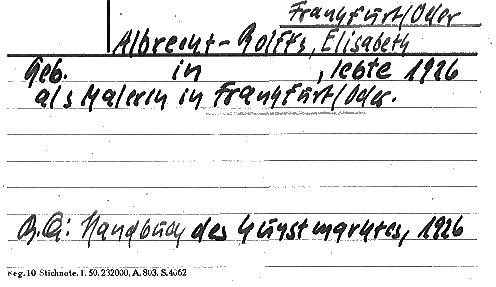 Frankfurt/Oder
Albrecht-Rolffs, Elisabeth
Geb. in , lebte 1926
als Malerin in Frankfurt/Oder.
Handbuch des Kunstmarktes, 1926
Reg. 10 Stichnote. 1. 50. 232000, A. 803. S. 4062